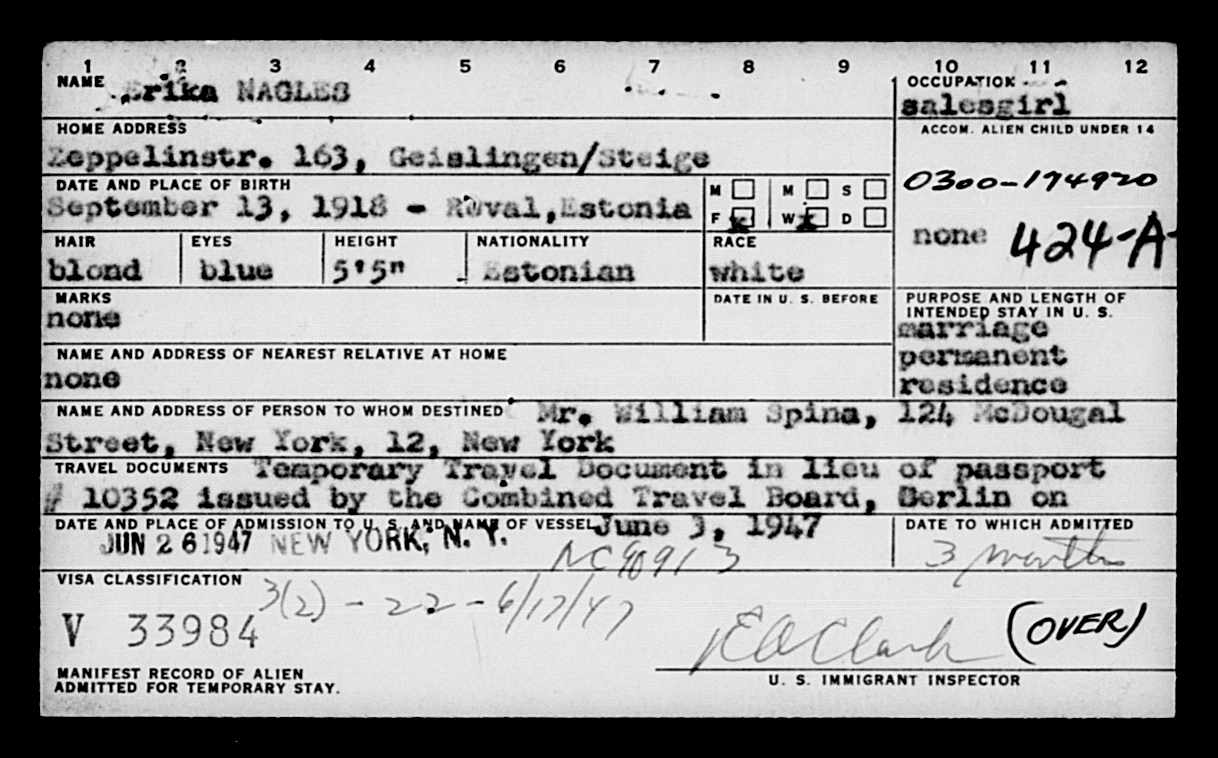 1 2 3 4 5 6 7 8 9 10 11 12
NAME Erika NAGLES
OCCUPATION
salesgirl
HOME ADDRESS
Zeppelinstr. 163, Geislingen/Steige
ACCOM. ALIEN CHILD UNDER 14
0300-174920
none 424-A-
DATE AND PLACE OF BIRTH
September 13, 1918 - Reval, Estonia
M M S
F x W x D
HAIR EYES HEIGHT NATIONALITY RACE
blond blue 5'5" Estonian white
MARKS
none
DATE IN U. S. BEFORE
PURPOSE AND LENGTH OF
INTENDED STAY IN U. S.
marriage
permanent
residence
NAME AND ADDRESS OF NEAREST RELATIVE AT HOME
none
NAME AND ADDRESS OF PERSON TO WHOM DESTINED Mr. William Spina, 124 McDougal
Street, New York, 12, New York
TRAVEL DOCUMENTS Temporary Travel Document in lieu of passport
# 10352 issued by the Combined Travel Board, Berlin on
DATE AND PLACE OF ADMISSION TO U. S. AND NAME OF VESSEL June 3, 1947
JUN 26 1947 NEW YORK, N. Y.
NC90913
DATE TO WHICH ADMITTED
3 months
VISA CLASSIFICATION
3(2) - 22 - 6/17/47
V 33984
(OVER)
MANIFEST RECORD OF ALIEN
ADMITTED FOR TEMPORARY STAY.
U. S. IMMIGRANT INSPECTOR